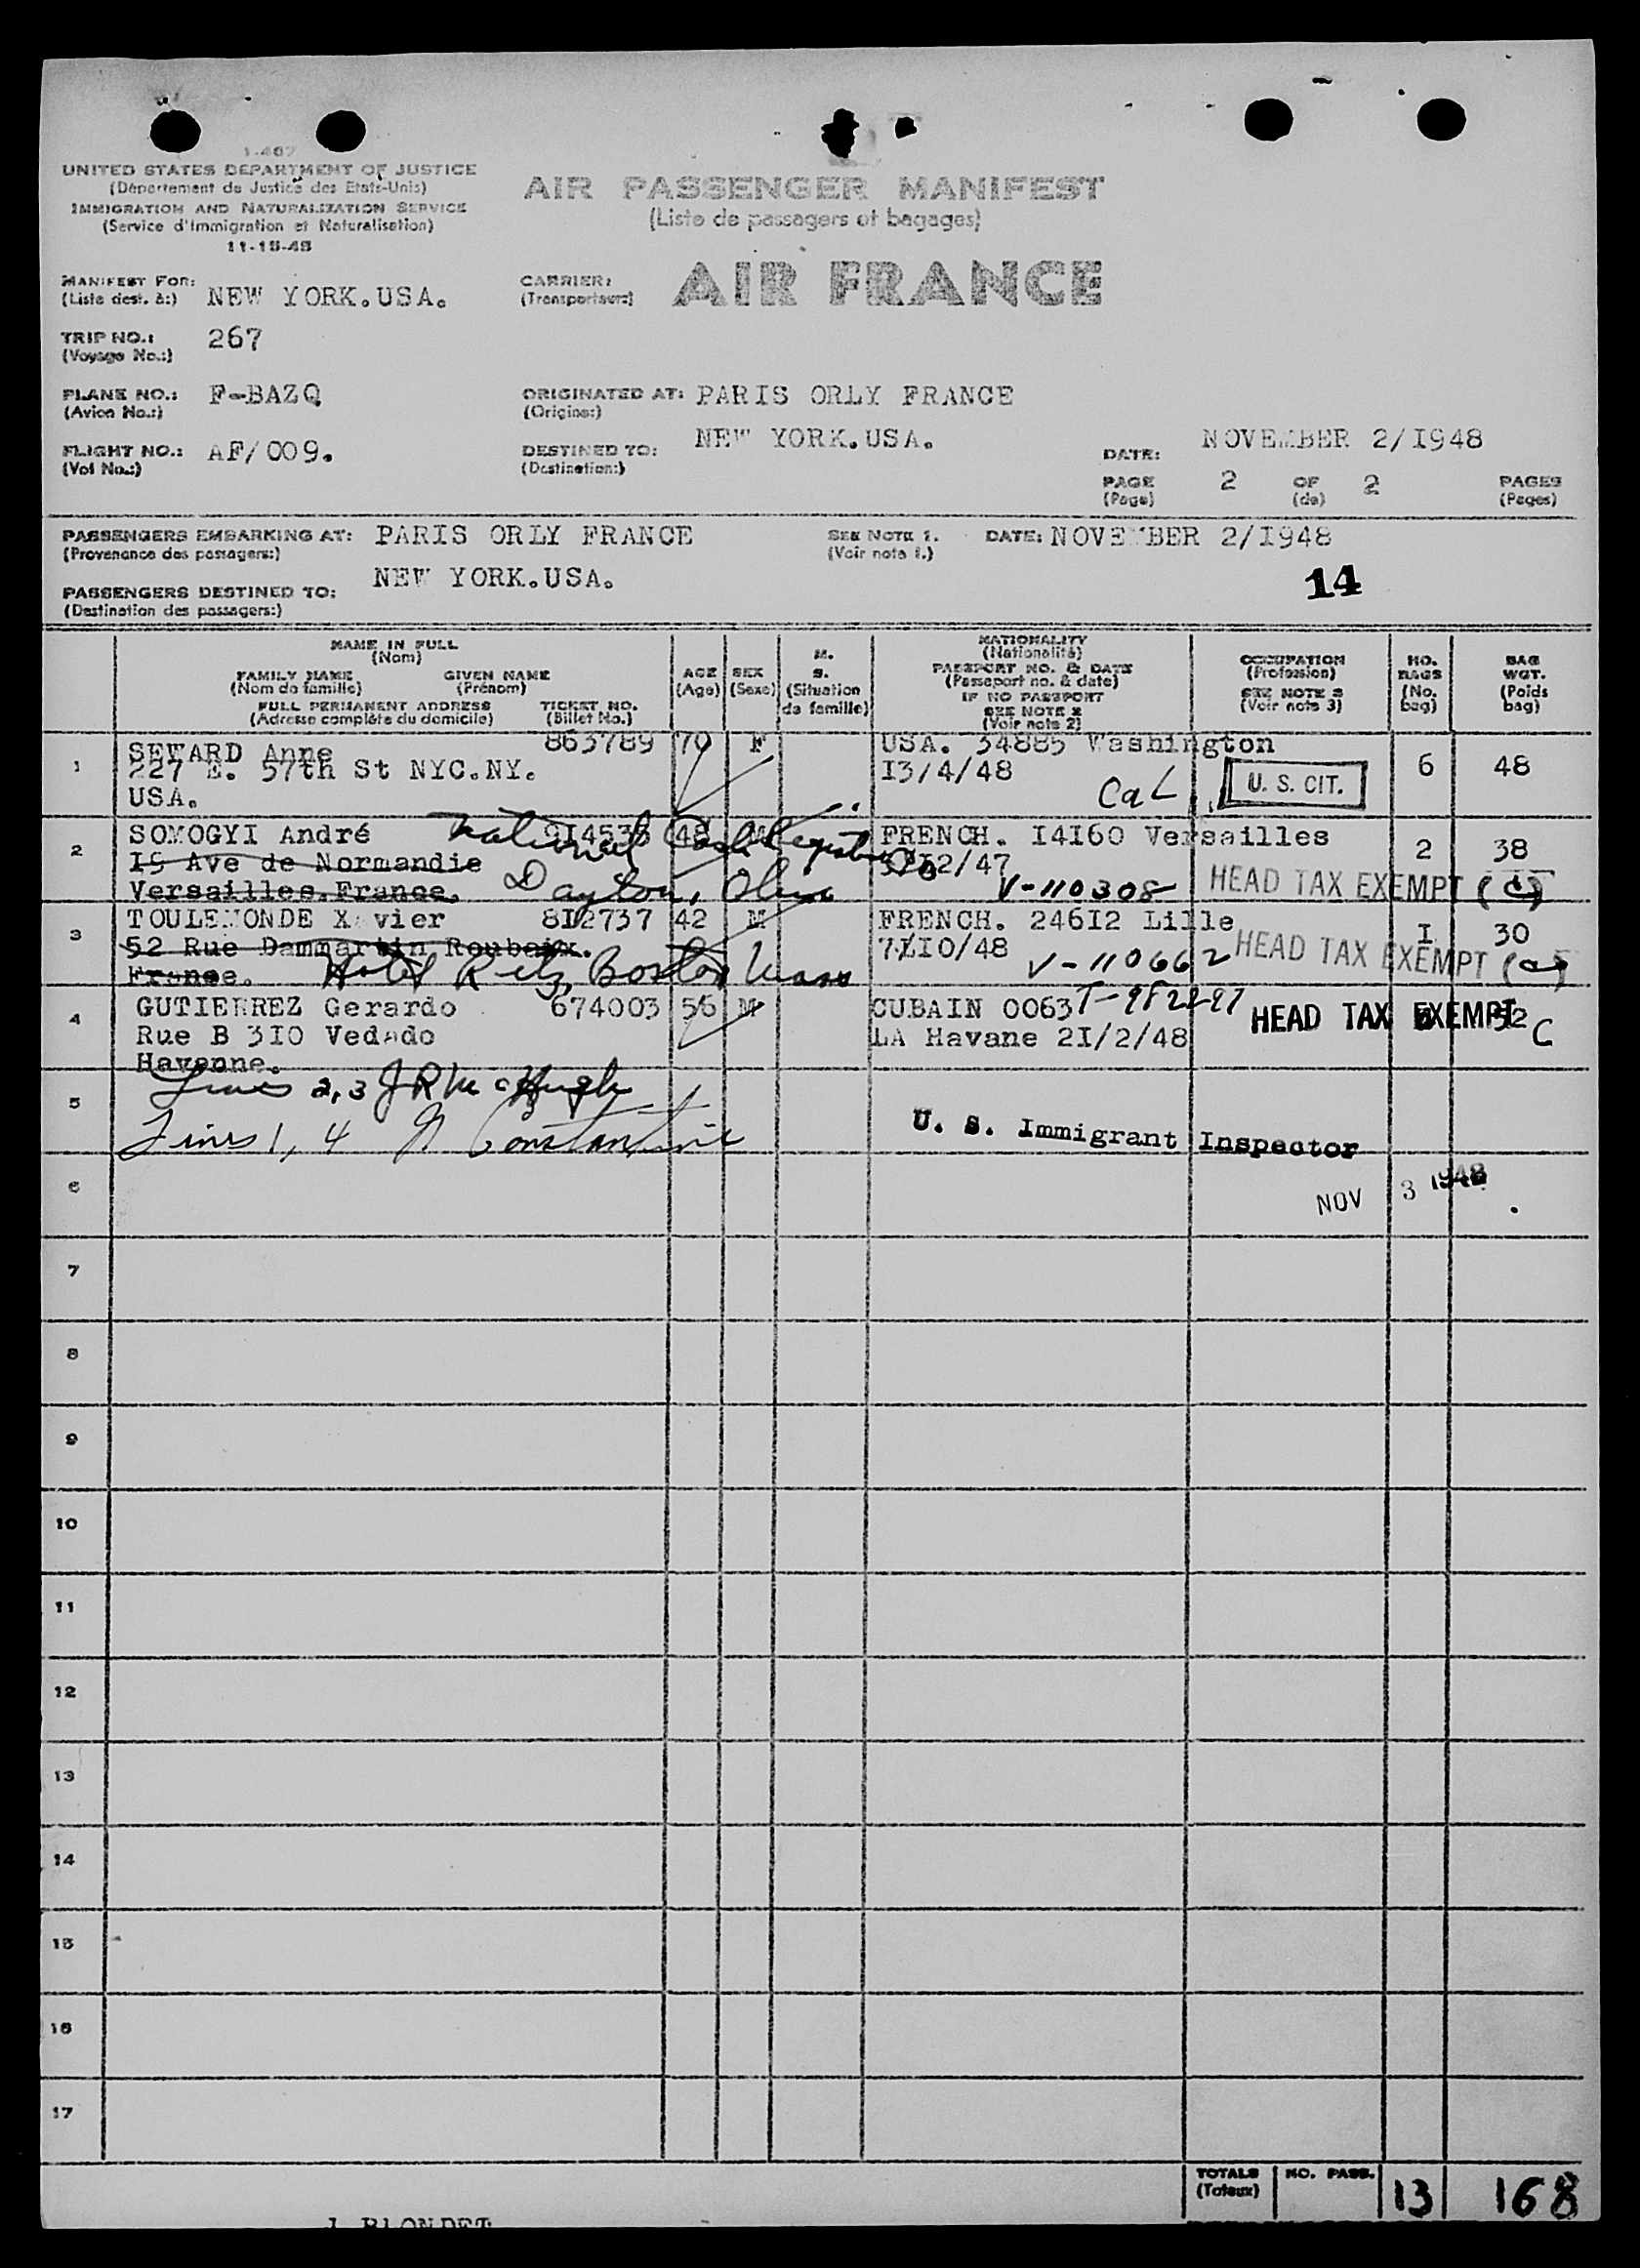 1-467
UNITED STATES DEPARTMENT OF JUSTICE
(Département de Justice des Etats-Unis)
IMMIGRATION AND NATURALIZATION SERVICE
(Service d'Immigration et Naturalisation)
11-18-48
AIR PASSENGER MANIFEST
(Liste de passagers et bagages)
MANIFEST FOR: NEW YORK.USA.
(Liste dest. à:)
CARRIER: AIR FRANCE
(Transporteur:)
TRIP NO.: 267
(Voyage No.:)
PLANE NO.: F-BAZQ
(Avion No.:)
ORIGINATED AT: PARIS ORLY FRANCE
(Origine:)
FLIGHT NO.: AF/009.
(Vol No.:)
DESTINED TO: NEW YORK.USA.
(Destination:)
DATE: NOVEMBER 2/I948
PAGE 2 OF 2 PAGES
(Page) (de) (Pages)
PASSENGERS EMBARKING AT: PARIS ORLY FRANCE
(Provenance des passagers:)
SEE NOTE 1. DATE: NOVEMBER 2/I948
(Voir note 1.)
PASSENGERS DESTINED TO: NEW YORK.USA.
(Destination des passagers:)
14
NAME IN FULL
(Nom)
FAMILY NAME GIVEN NAME
(Nom de famille) (Prénom)
FULL PERMANENT ADDRESS TICKET NO.
(Adresse complète du domicile) (Billet No.)
AGE
(Age)
SEX
(Sexe)
M.
S.
(Situation
de famille)
NATIONALITY
(Nationalité)
PASSPORT NO. & DATE
(Passeport no. & date)
IF NO PASSPORT
SEE NOTE 2
(Voir note 2)
OCCUPATION
(Profession)
SEE NOTE 3
(Voir note 3)
NO.
BAGS
(No.
bag)
BAG
WGT.
(Poids
bag)
1 SEWARD Anne 863789 70 F USA. 34885 Washington 6 48
227 E. 57th St NYC.NY. I3/4/48 U. S. CIT.
USA. Cal
2 SOMOGYI André 9I4535 48 M FRENCH. I4I60 Versailles 2 38
National Cash Register Co
I9 Ave de Normandie I2/47
Versailles.France. Dayton, Ohio V-110308 HEAD TAX EXEMPT (C)
3 TOULEMONDE Xavier 8I2737 42 M FRENCH. 246I2 Lille I 30
52 Rue Dammartin Roubaix. 7/I0/48 HEAD TAX EXEMPT (C)
France. Hotel Ritz, Boston Mass V-110662
4 GUTIERREZ Gerardo 674003 56 M CUBAIN 0063 52
Rue B 3I0 Vedado LA Havane 2I/2/48 HEAD TAX EXEMPT C
Havanne.
5 Lines 2,3 J R McHugh
Lines 1, 4 N Constantine
U. S. Immigrant Inspector
6 NOV 3 1948
7
8
9
10
11
12
13
14
15
16
17
TOTALS NO. PASS. 13 168
(Totaux)
J BLONDET